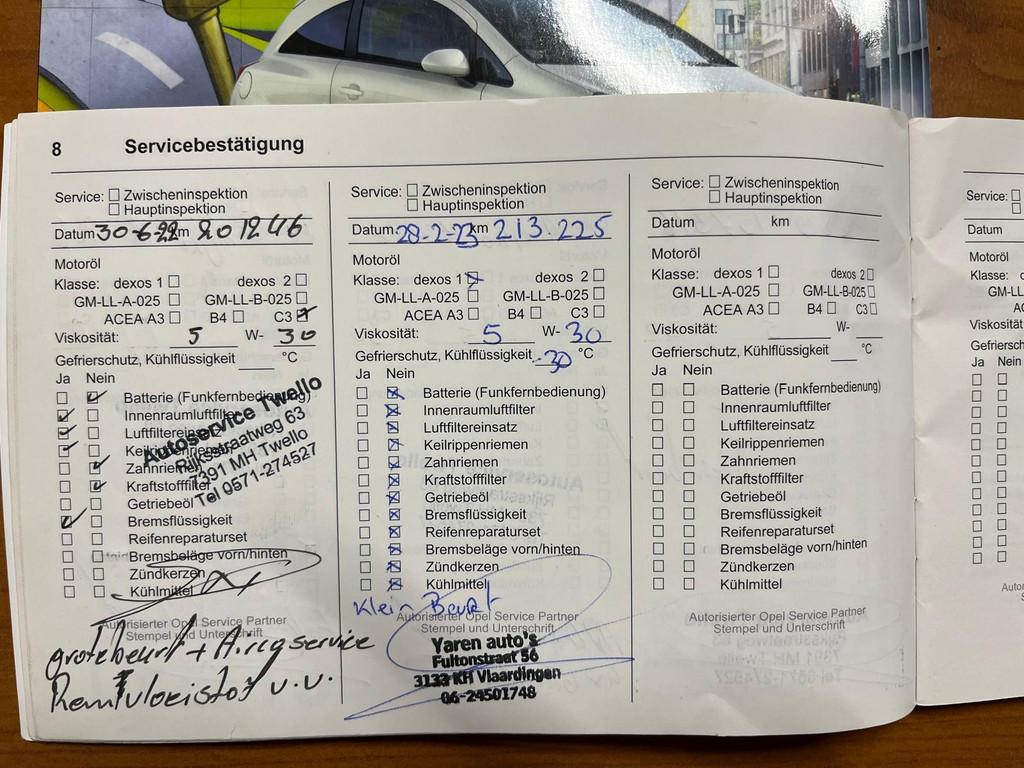 8 Servicebestätigung
Service: ☐ Zwischeninspektion
☐ Hauptinspektion
Datum 30-6-22 km 201246
Motoröl
Klasse: dexos 1 ☐ dexos 2 ☐
GM-LL-A-025 ☐ GM-LL-B-025 ☐
ACEA A3 ☐ B4 ☐ C3 ☒
Viskosität: 5 W- 30
Gefrierschutz, Kühlflüssigkeit °C
Ja Nein
Batterie (Funkfernbedienung)
Innenraumluftfilter
Luftfiltereinsatz
Keilrippenriemen
Zahnriemen
Kraftstofffilter
Getriebeöl
Bremsflüssigkeit
Reifenreparaturset
Bremsbeläge vorn/hinten
Zündkerzen
Kühlmittel
Autoservice Twello
Rijksstraatweg 63
7391 MH Twello
Tel 0571-274527
Autorisierter Opel Service Partner
Stempel und Unterschrift
grote beurt + Aircoservice
Remvloeistof v.v.
Service: ☐ Zwischeninspektion
☐ Hauptinspektion
Datum 28-2-23 km 213.225
Motoröl
Klasse: dexos 1 ☒ dexos 2 ☐
GM-LL-A-025 ☐ GM-LL-B-025 ☐
ACEA A3 ☐ B4 ☐ C3 ☐
Viskosität: 5 W- 30
Gefrierschutz, Kühlflüssigkeit -30 °C
Ja Nein
Batterie (Funkfernbedienung)
Innenraumluftfilter
Luftfiltereinsatz
Keilrippenriemen
Zahnriemen
Kraftstofffilter
Getriebeöl
Bremsflüssigkeit
Reifenreparaturset
Bremsbeläge vorn/hinten
Zündkerzen
Kühlmittel
Klein Beurt
Autorisierter Opel Service Partner
Stempel und Unterschrift
Yaren auto's
Fultonstraat 56
3133 KH Vlaardingen
06-24501748
Service: ☐ Zwischeninspektion
☐ Hauptinspektion
Datum km
Motoröl
Klasse: dexos 1 ☐ dexos 2 ☐
GM-LL-A-025 ☐ GM-LL-B-025 ☐
ACEA A3 ☐ B4 ☐ C3 ☐
Viskosität: W-
Gefrierschutz, Kühlflüssigkeit °C
Ja Nein
Batterie (Funkfernbedienung)
Innenraumluftfilter
Luftfiltereinsatz
Keilrippenriemen
Zahnriemen
Kraftstofffilter
Getriebeöl
Bremsflüssigkeit
Reifenreparaturset
Bremsbeläge vorn/hinten
Zündkerzen
Kühlmittel
Autorisierter Opel Service Partner
Stempel und Unterschrift
Service: ☐
☐
Datum
Motoröl
Klasse:
GM-LL
ACE
Viskosität
Ja Nein